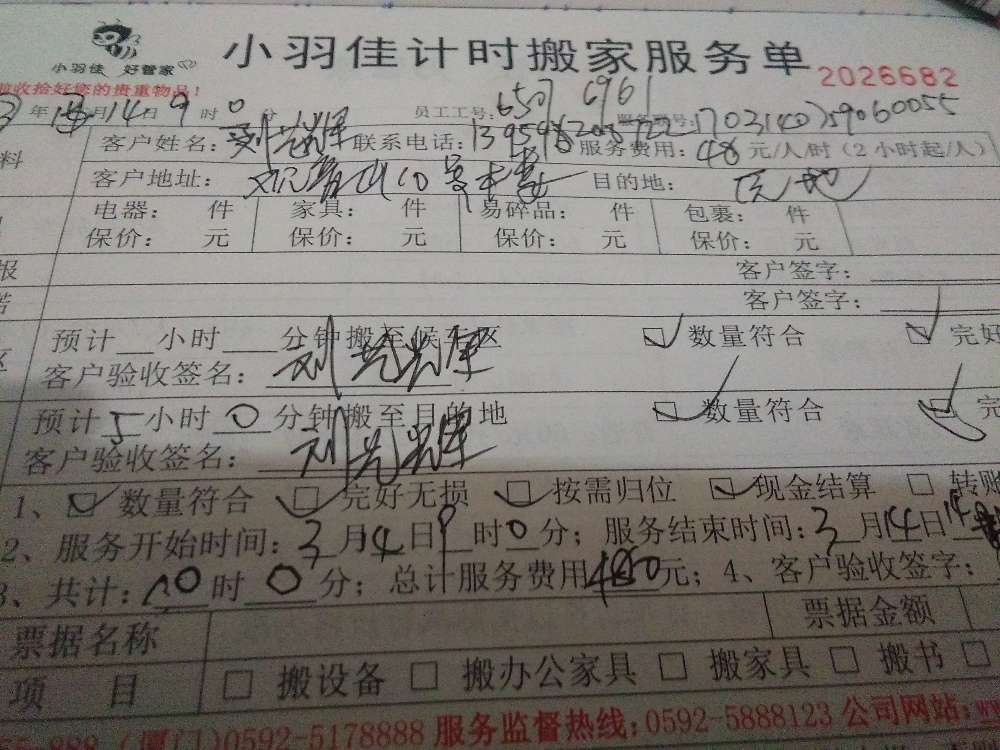 小羽佳计时搬家服务单
小羽佳 好管家
2026682
收拾好您的贵重物品！
年 月14日9时0分 员工工号：6507 6961
客户姓名： 联系电话： 服务费用：48元/人/时（2小时起/人）
客户地址： 目的地：
电器： 件 家具： 件 易碎品： 件 包裹： 件
保价： 元 保价： 元 保价： 元 保价： 元
报 客户签字：
客户签字：
预计 小时 分钟搬至候车区 数量符合 完好
客户验收签名：刘光辉
预计5小时0分钟搬至目的地 数量符合 完
客户验收签名：刘光辉
1、数量符合 完好无损 按需归位 现金结算 转账
2、服务开始时间：3月4日9时0分；服务结束时间：3月14日14
3、共计：10时0分；总计服务费用480元；4、客户验收签字：
票据名称 票据金额
项目 搬设备 搬办公家具 搬家具 搬书
(厦门)0592-5178888 服务监督热线:0592-5888123 公司网站: